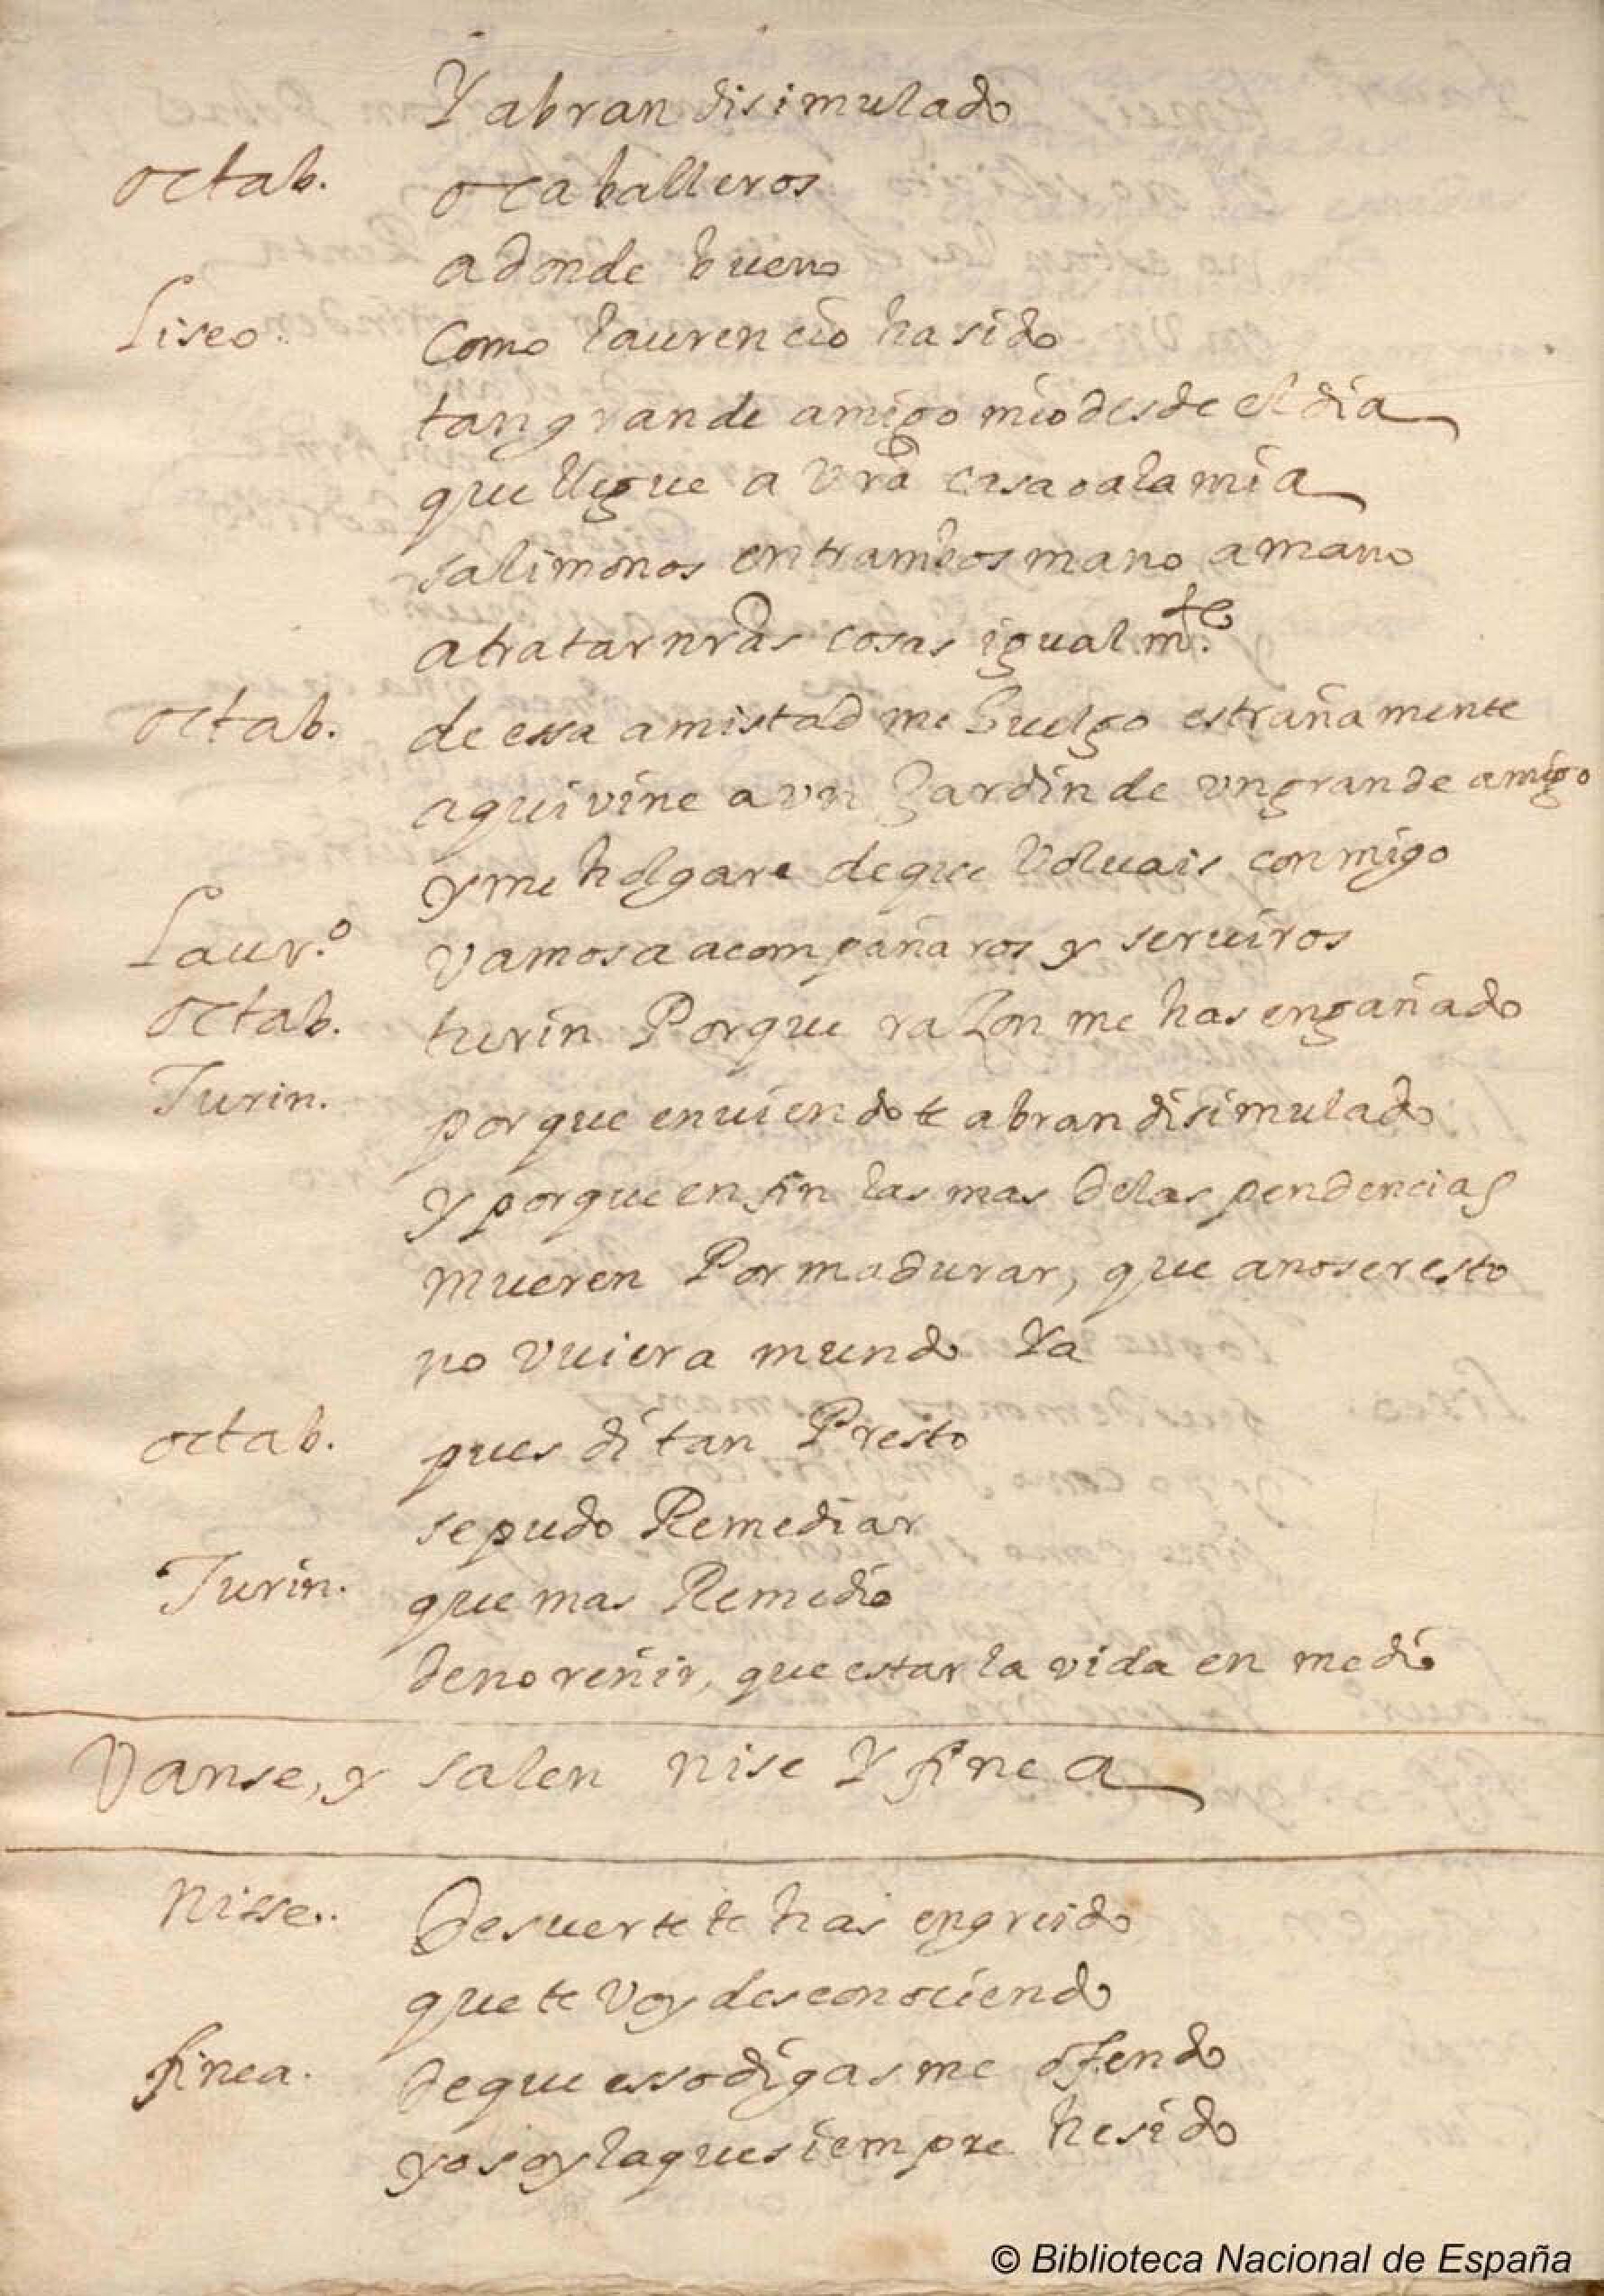 Y abran disimulado
octab. o caballeros
adonde bueno
Liseo. Como laurencio ha sido
tan grande amigo mio desde el dia
que llegue a vra casa o a la mia
salimonos entrambos mano a mano
a tratar nras cosas igualmte.
octab. de essa amistad me huelgo estrañamente
aqui vine a vn Jardin de vn grande amigo
y me holgare de que voluais conmigo
Laur.o vamos a acompañaros y seruiros
octab. turin Por que raZon me has engañado
Turin. porque en uiendote abran disimulado
y porque en fin las mas delas pendencias
mueren Por madurar, que a no ser esto
no vuiera mundo Ya
octab. pues di tan Presto
se pudo Remediar
Turin. que mas Remedio
de no reñir, que estar la vida en medio
Vanse, y salen nise Y finea
Nisse.. De suerte te has engreido
que te voy desconociendo
finea. de que esso digas me ofendo
yo soy la que siempre he sido
© Biblioteca Nacional de España